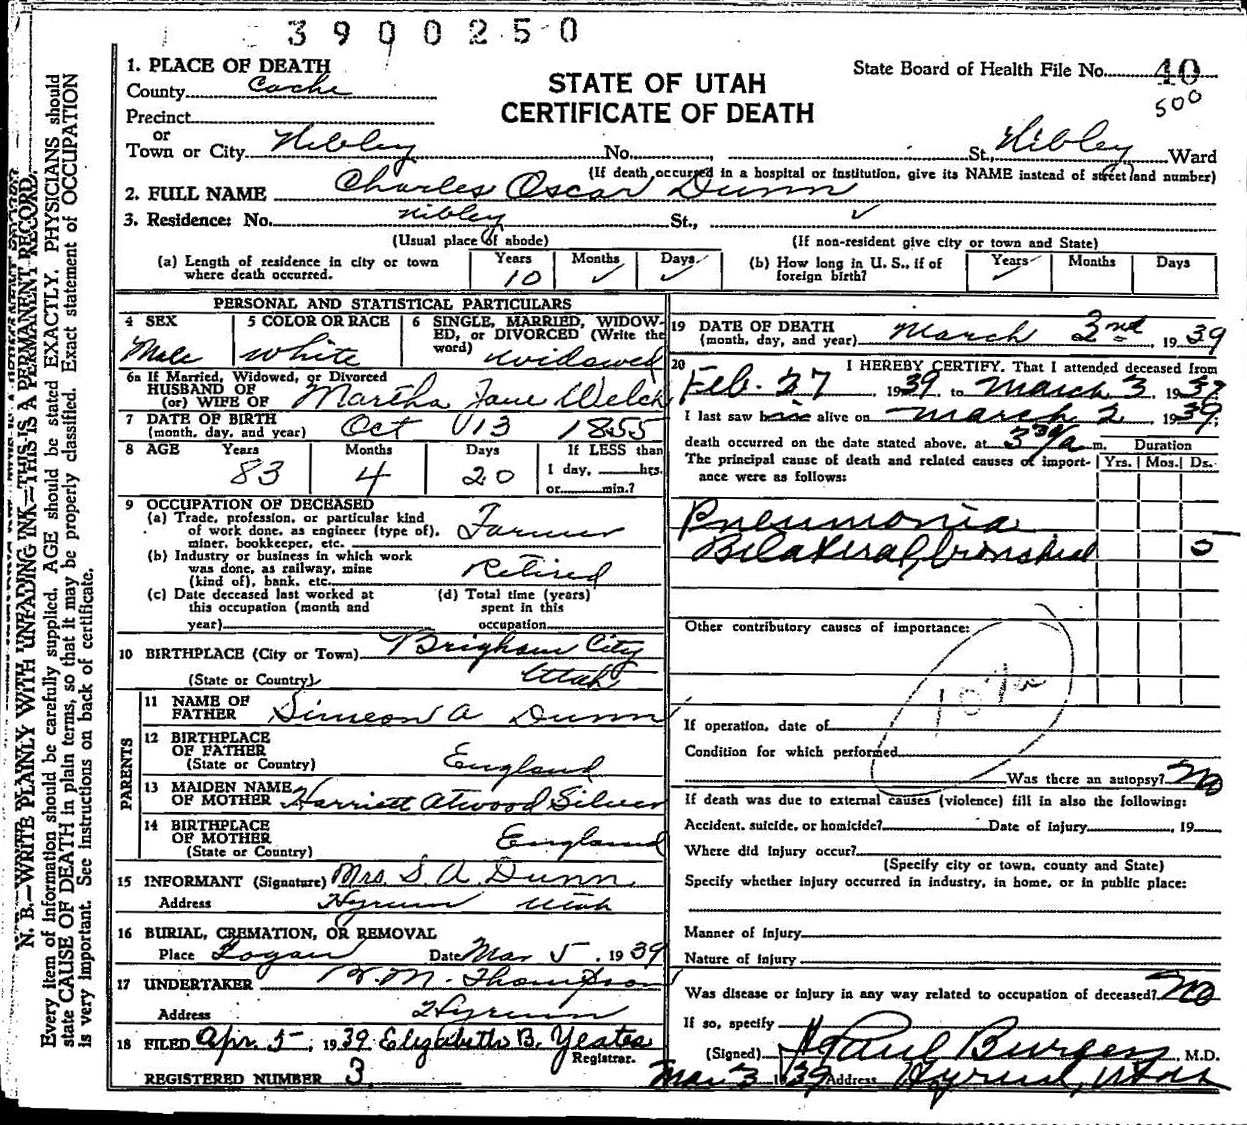 3900250
1. PLACE OF DEATH
County Cache
Precinct
or
Town or City Nibley No. , St., Nibley Ward
STATE OF UTAH
CERTIFICATE OF DEATH
State Board of Health File No. 40
500
(If death occurred in a hospital or institution, give its NAME instead of street and number)
2. FULL NAME Charles Oscar Dunn
3. Residence: No. Nibley St., ✓
(Usual place of abode) (If non-resident give city or town and State)
(a) Length of residence in city or town where death occurred. Years 10 Months ✓ Days ✓
(b) How long in U. S., if of foreign birth? Years ✓ Months Days
PERSONAL AND STATISTICAL PARTICULARS
4 SEX Male
5 COLOR OR RACE White
6 SINGLE, MARRIED, WIDOW-
ED, or DIVORCED (Write the
word) widowed
6a If Married, Widowed, or Divorced
HUSBAND OF
(or) WIFE OF Martha Jane Welch
7 DATE OF BIRTH
(month, day, and year) Oct 13 1855
8 AGE Years 83 Months 4 Days 20
If LESS than
1 day, hrs.
or min.?
9 OCCUPATION OF DECEASED
(a) Trade, profession, or particular kind
of work done, as engineer (type of),
miner, bookkeeper, etc. Farmer
(b) Industry or business in which work
was done, as railway, mine
(kind of), bank, etc. Retired
(c) Date deceased last worked at
this occupation (month and
year)
(d) Total time (years)
spent in this
occupation
10 BIRTHPLACE (City or Town) Brigham City
(State or Country) Utah
PARENTS
11 NAME OF
FATHER Simeon A Dunn
12 BIRTHPLACE
OF FATHER
(State or Country) England
13 MAIDEN NAME
OF MOTHER Harriett Atwood Silver
14 BIRTHPLACE
OF MOTHER
(State or Country) England
15 INFORMANT (Signature) Mrs. S. A. Dunn
Address Hyrum Utah
16 BURIAL, CREMATION, OR REMOVAL
Place Logan Date Mar 5, 1939
17 UNDERTAKER M. Thompson
Address Hyrum
18 FILED Apr. 5, 1939 Elizabeth B. Yeates
Registrar.
REGISTERED NUMBER 3
19 DATE OF DEATH
(month, day, and year) March 2nd 1939
20 I HEREBY CERTIFY. That I attended deceased from
Feb. 27, 1939 to March 3, 1939
I last saw him alive on March 2, 1939;
death occurred on the date stated above, at 3 30/a m. Duration
The principal cause of death and related causes of import-
ance were as follows: Yrs. Mos. Ds.
Pneumonia
Bilateral bronchial 5
Other contributory causes of importance:
107a
If operation, date of
Condition for which performed
Was there an autopsy? No
If death was due to external causes (violence) fill in also the following:
Accident, suicide, or homicide? Date of injury , 19
Where did injury occur?
(Specify city or town, county and State)
Specify whether injury occurred in industry, in home, or in public place:
Manner of injury
Nature of injury
Was disease or injury in any way related to occupation of deceased? No
If so, specify
(Signed) H. Paul Burgess, M.D.
Mar 3 1939 Address Hyrum, Utah
N. B.—WRITE PLAINLY WITH UNFADING INK—THIS IS A PERMANENT RECORD.
Every item of information should be carefully supplied. AGE should be stated EXACTLY. PHYSICIANS should
state CAUSE OF DEATH in plain terms, so that it may be properly classified. Exact statement of OCCUPATION
is very important. See instructions on back of certificate.